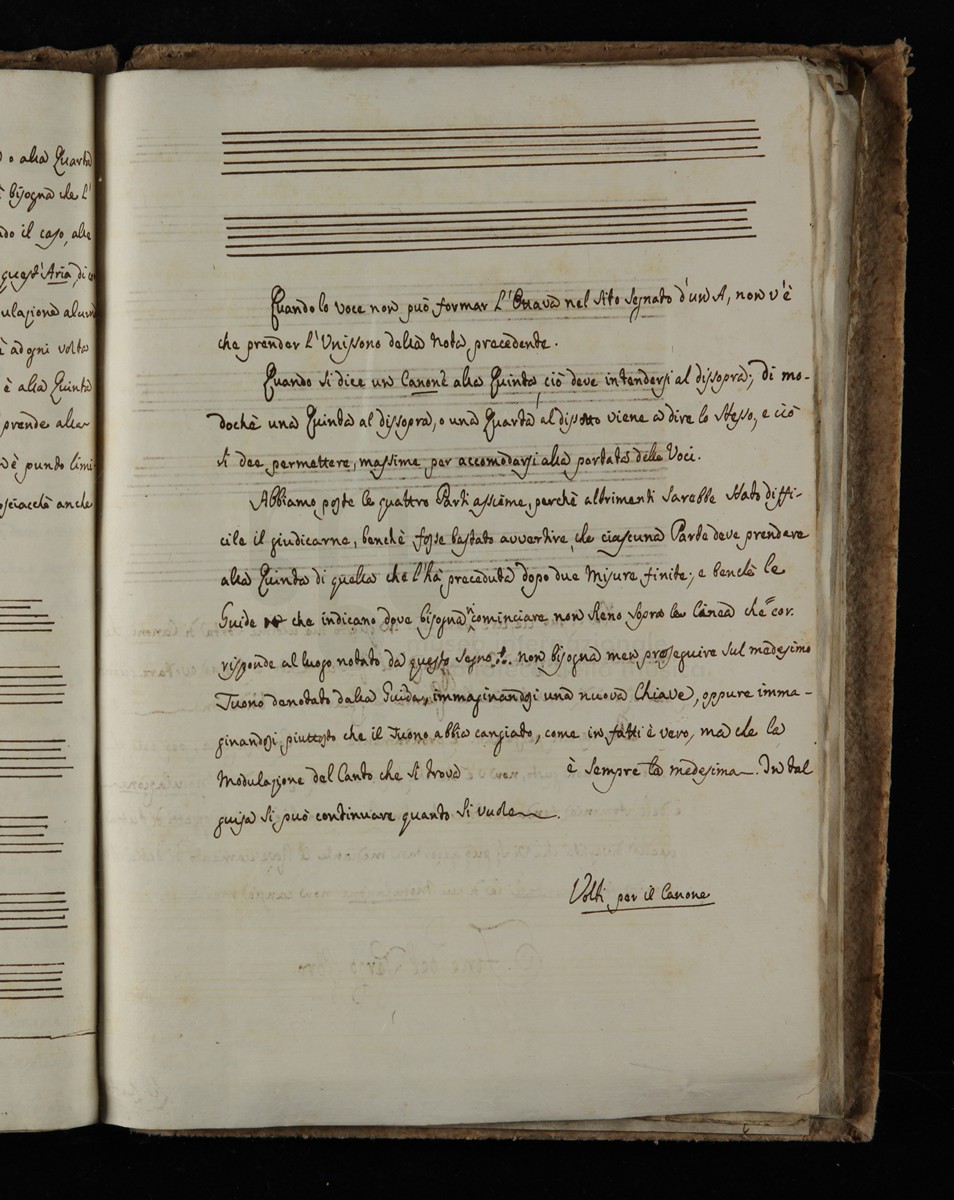 o alla Quarta
bisogna che l'
do il caso, alla
quest'Aria, di
ulazione alcun
ad ogni volta
è alla Quinta
prende alla
è punto limi
osciacchè anche
Quando la voce non può formar l'Ottava nel sito segnato d'un A, non v'è
che prender l'Unissono della nota precedente.
Quando si dice un Canone alla Quinta, ciò deve intendersi al dissopra; di mo-
dochè una Quinta al dissopra, o una Quarta al dissotto viene a dire lo stesso, e ciò
si dee permettere, massime per accomodarsi alla portata delle Voci.
Abbiamo poste le quattro Parti assieme, perchè altrimenti sarebbe stato diffi-
cile il giudicarne, benchè fosse bastato avvertire, che ciascuna Parte deve prendere
alla Quinta di quella che l'ha preceduta dopo due Misure finite; e benchè le
Guide che indicano dove bisogna cominciare non sieno sopra la linea che cor=
risponde al luogo notato da questo segno .S. non bisogna men proseguire sul medesimo
Tuono denotato dalla Guida, immaginandosi una nuova Chiave, oppure imma-
ginandosi piuttosto che il Tuono abbia cangiato, come in fatti è vero, ma che la
Modulazione del Canto che si trova è sempre la medesima. In tal
guisa si può continuare quanto si vuole.
Volti per il Canone